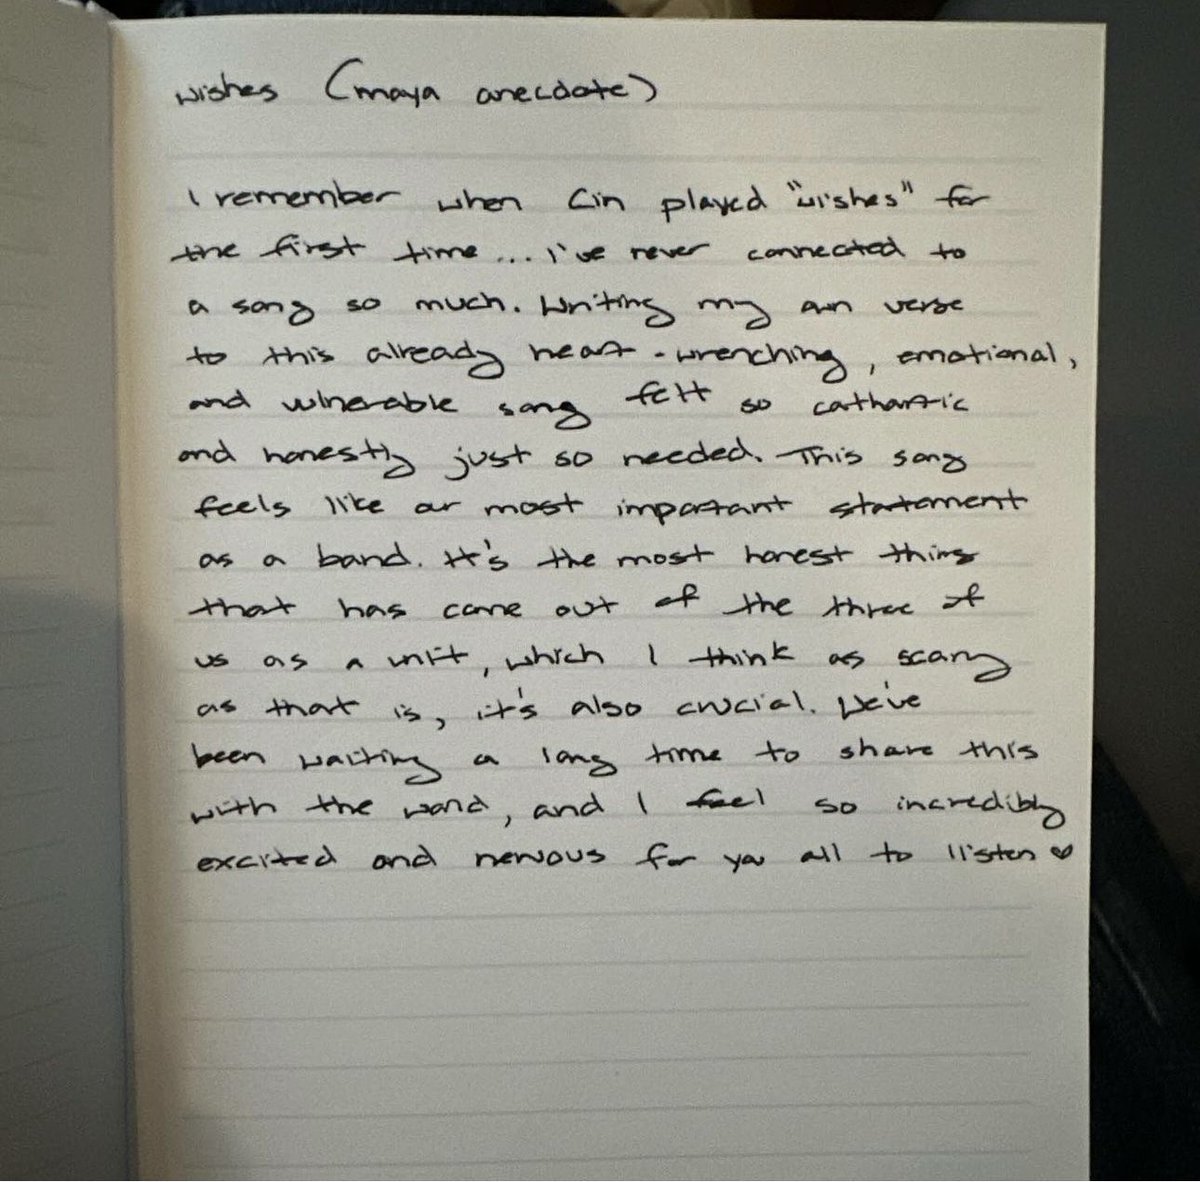 wishes (maya anecdote)
I remember when Cin played "wishes" for
the first time... I've never connected to
a song so much. Writing my own verse
to this already heart-wrenching, emotional,
and vulnerable song felt so cathartic
and honestly just so needed. This song
feels like our most important statement
as a band. It's the most honest thing
that has come out of the three of
us as a unit, which I think as scary
as that is, it's also crucial. We've
been waiting a long time to share this
with the world, and I feel so incredibly
excited and nervous for you all to listen ♥